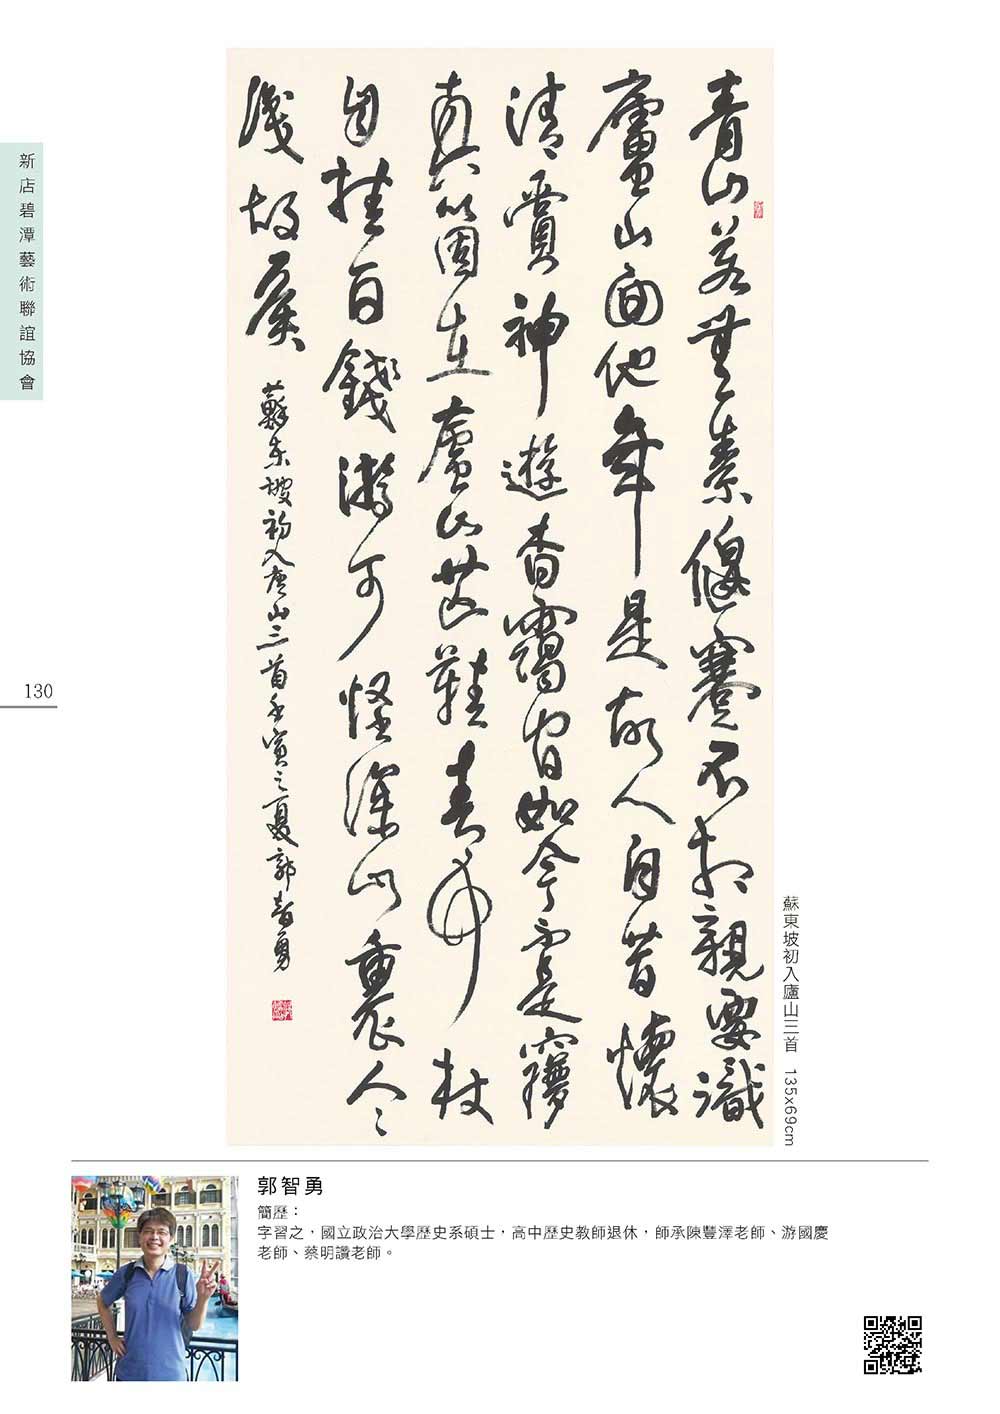 新店碧潭藝術聯誼協會
130
青山若無素偃蹇不相親要識
廬山面他年是故人自昔懷
清賞神遊杳靄間如今不是夢
真箇在廬山芒鞋青竹杖
自挂百錢游可怪深山裏人〻
識故侯
蘇東坡初入廬山三首壬寅之夏郭智勇
蘇東坡初入廬山三首 135x69cm
郭智勇
簡歷：
字習之，國立政治大學歷史系碩士，高中歷史教師退休，師承陳豐澤老師、游國慶
老師、蔡明讚老師。